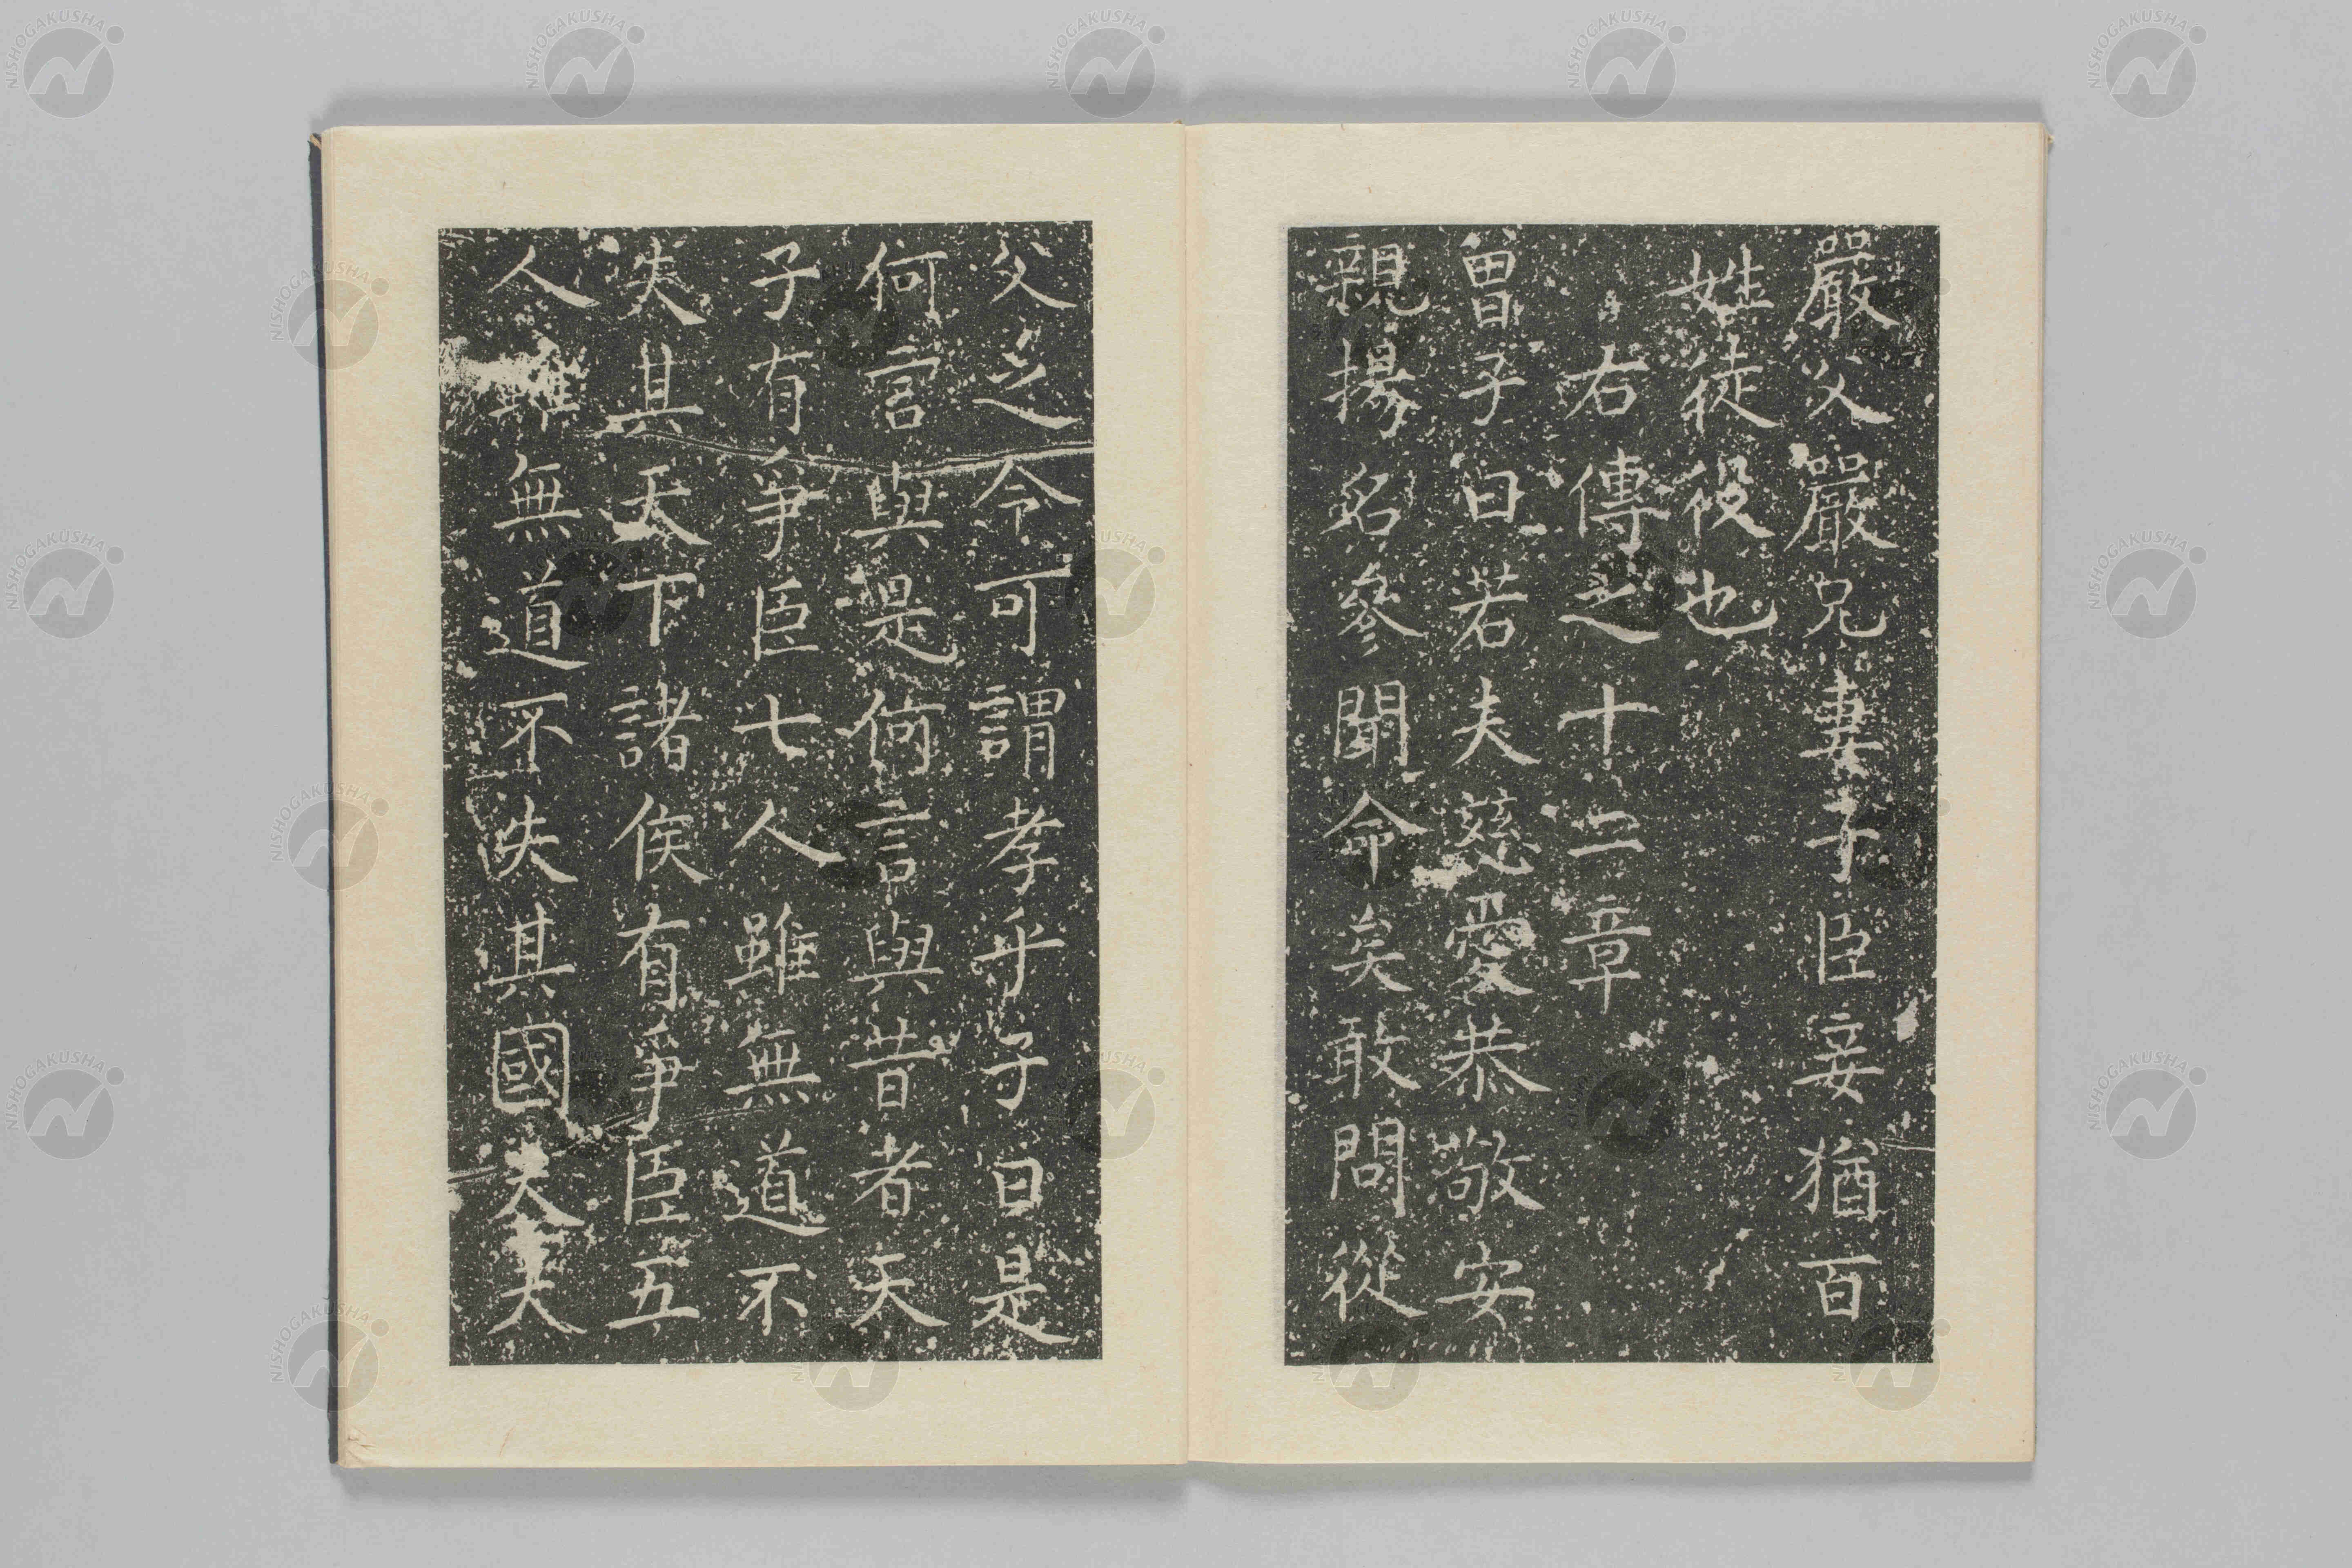 嚴父嚴兄妻子臣妾猶百
姓徒役也
右傳之十二章
曽子曰若夫慈愛恭敬安
親揚名參聞命矣敢問從
父之令可謂孝乎子曰是
何言與是何言與昔者天
子有爭臣七人雖無道不
失其天下諸侯有爭臣五
人雖無道不失其國大夫
NISHOGAKUSHA